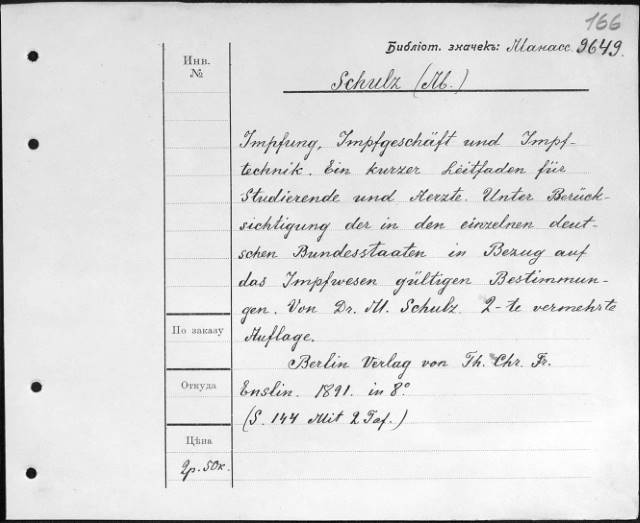 166
Библіот. значекъ: Манасс. 9649.
Инв.
№
Schulz (M.)
Impfung, Impfgeschäft und Impf-
technik. Ein kurzer Leitfaden für
Studierende und Aerzte. Unter Berück-
sichtigung der in den einzelnen deut-
schen Bundesstaaten in Bezug auf
das Impfwesen gültigen Bestimmun-
gen. Von Dr. M. Schulz. 2-te vermehrte
Auflage.
Berlin Verlag von Th. Chr. Fr.
Enslin. 1891. in 8°
(S. 144 Mit 2 Taf.)
По заказу
Откуда
Цѣна
2р. 50к.